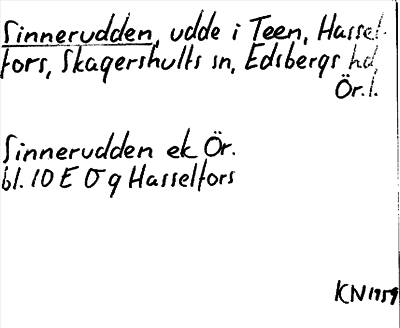 Sinnerudden, udde i Teen, Hassel-
fors, Skagershults sn, Edsbergs hd,
Ör.l.
Sinnerudden ek Ör.
bl. 10 E 0 g Hasselfors
KN 1959